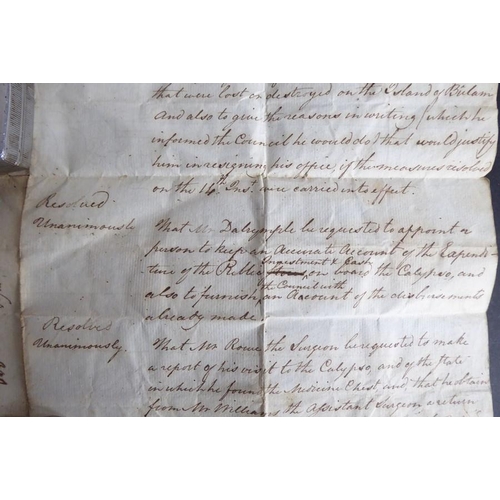 that were lost or destroyed on the Island of Bulam
And also to give the reasons in writing (which he
informed the Council he would do) that would justify
him in resigning his office, if the measures resolved
on the 14th Ins. were carried into effect.
Resolved
Unanimously
That Mr Dalrymple be requested to appoint a
person to keep an Accurate Account of the Expendi-
Investment & Cash
ture of the Public Stores, on board the Calypso, and
the Council with
also to furnish an Account of the disbursements
already made
Resolved
Unanimously.
That Mr Rowe the Surgeon be requested to make
a report of his visit to the Calypso, and of the state
in which he found the Medicine Chest and that he obtain
from Mr Williams the Assistant Surgeon a return